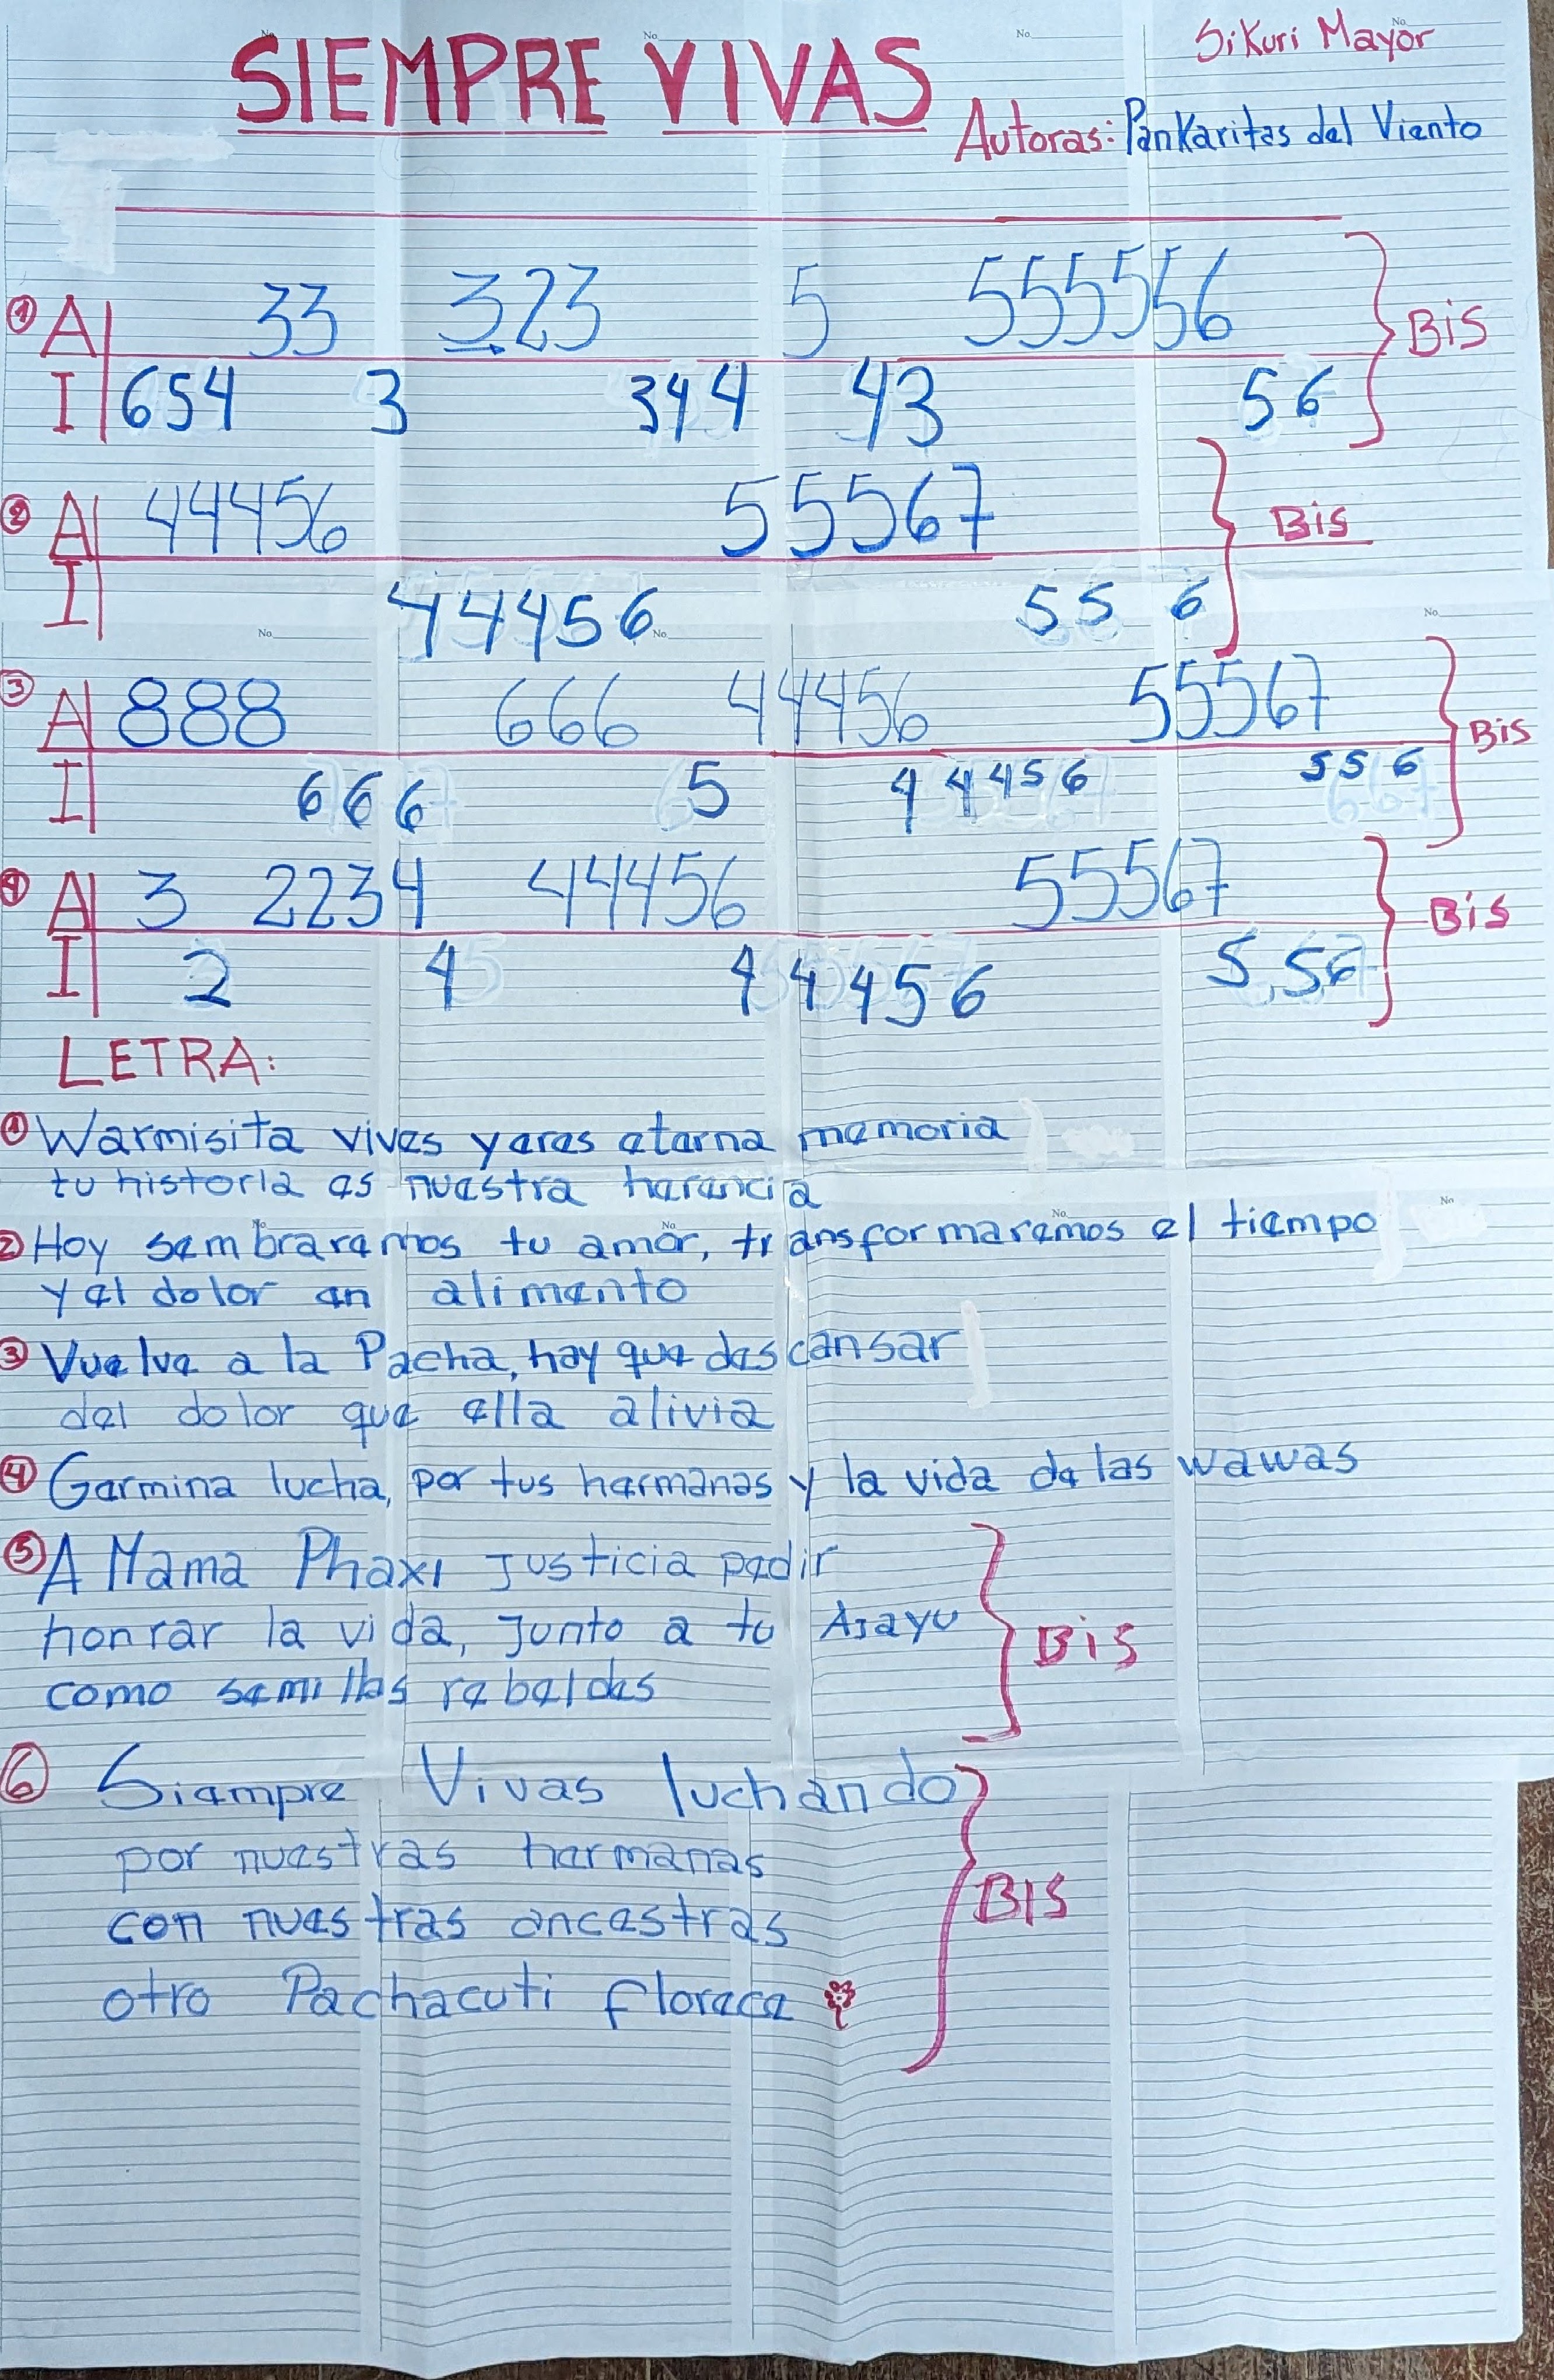 SIEMPRE VIVAS
Sikuri Mayor
Autoras: Pankaritas del Viento
① A 33 323 5 555556 Bis
I 654 3 344 43 56
② A 44456 55567 Bis
I 44456 55 6
③ A 888 666 44456 55567 Bis
I 666 5 44456 556
④ A 3 2234 44456 55567 Bis
I 2 4 44456 5 56
LETRA:
① Warmisita vives y eres eterna memoria
tu historia es nuestra herencia
② Hoy sembraremos tu amor, transformaremos el tiempo
y el dolor en alimento
③ Vuelve a la Pacha, hay que descansar
del dolor que ella alivia
④ Germina lucha, por tus hermanas y la vida de las wawas
⑤ A Mama Phaxi Justicia pedir
honrar la vida, Junto a tu Ajayu
como semillas rebeldes
Bis
⑥ Siempre Vivas luchando
por nuestras hermanas
con nuestras ancestras
otro Pachacuti florece
BIS